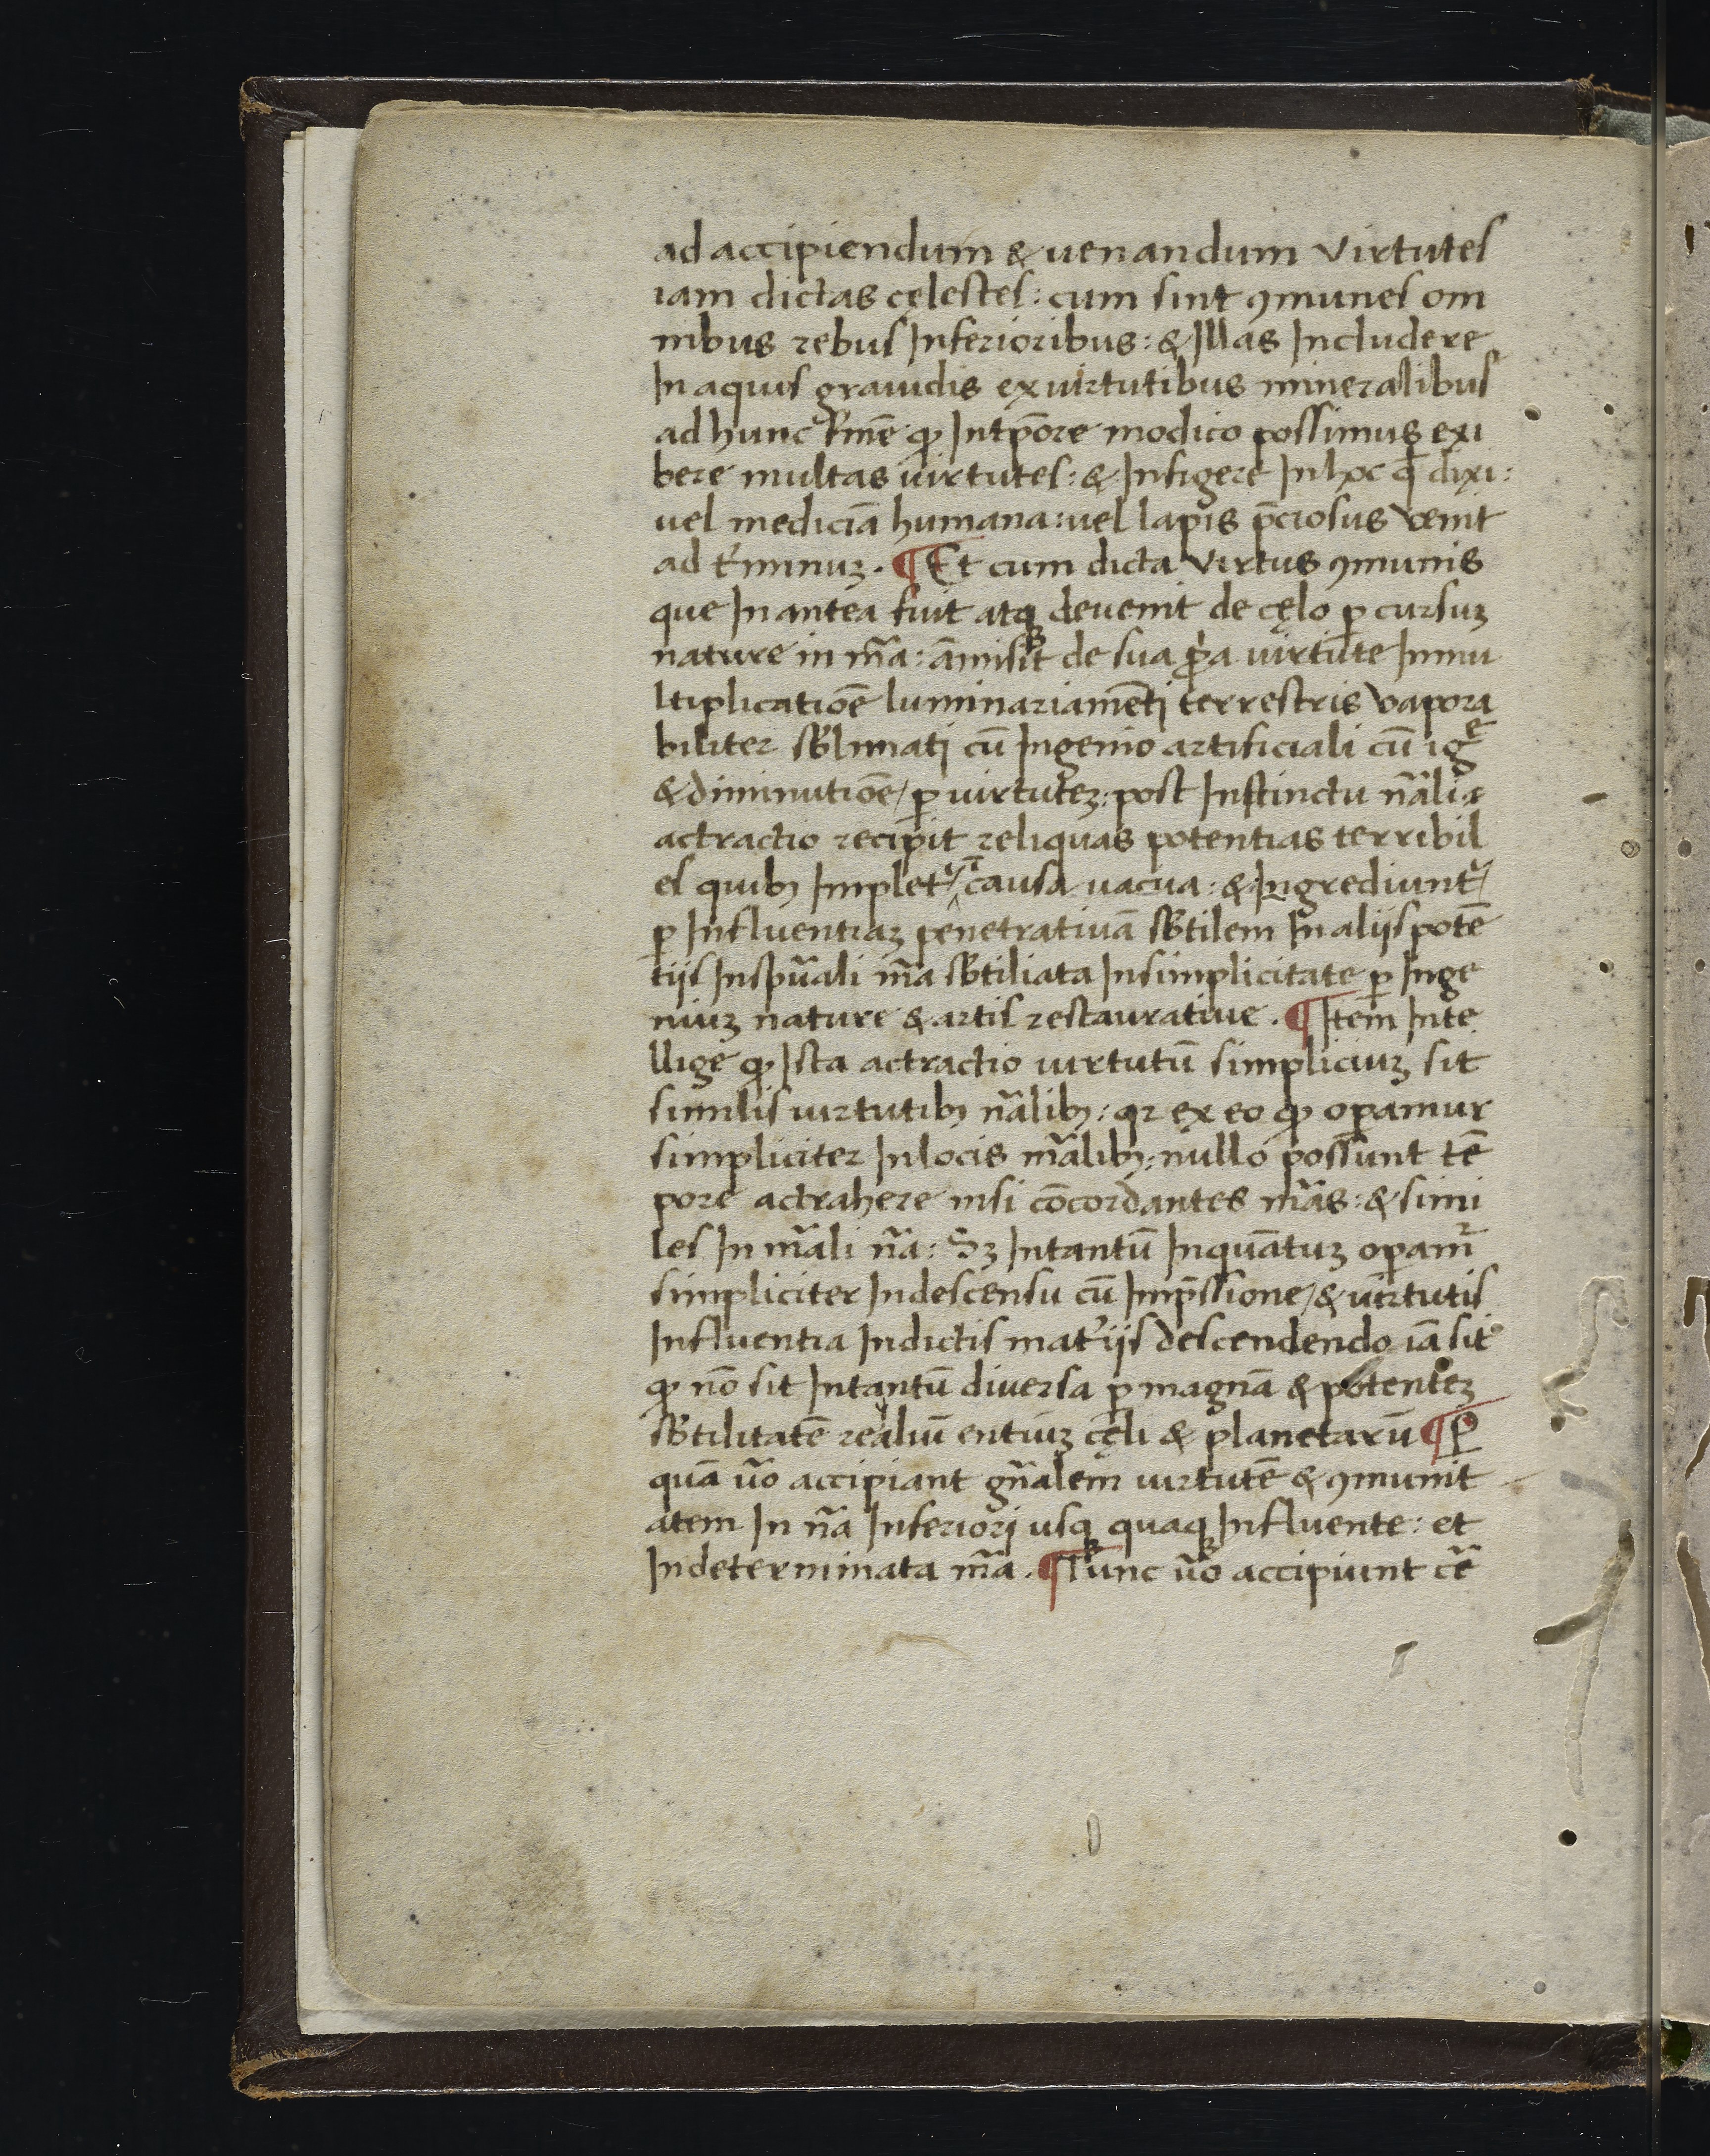 ad accipiendum & uenandum virtutes
iam dictas cęlestes: cum sint ꝯmunes om
nibus rebus Inferioribus: & Illas Includere
In aquis grauidis ex uirtutibus mineralibus
ad hunc t̄minē ꝙ In tp̄ore modico possimus exi
bere multas uirtutes: & Infigere In hoc q̄ dixi:
uel mediciā humana: uel lapis p̄ciosus venit
ad t̄minuꝫ. ¶ Et cum dicta virtus ꝯmunis
que In antea fuit atqꝫ deuenit de cęlo ꝑ cursuꝫ
nature in m̄a: āmisit de sua p̄a uirtute In mu
ltiplicatiōe luminariamēti terrestris vapora
biliter sƀlimati cū Ingenio artificiali cū igē
& diminutiōe / ꝑ uirtuteꝫ: post Instinctu nāli
actractio recipit reliquas potentias terribil
es quibꝫ Impletr̃ causa uacua: & Ingrediuntr̃
ꝑ Influentiaꝫ penetratiuā sƀtilem In aliis potē
tijs In sp̄uali m̄a sƀtiliata In simplicitate ꝑ Inge
niuꝫ nature & artis restauratiue. ¶ Item Inte
llige ꝙ Ista actractio uirtutū simpliciuꝫ sit
similis uirtutibꝫ nālibꝫ: qr ex eo ꝙ opamur
simpliciter In locis m̄alibꝫ: nullo possunt tē
pore actrahere nisi cōcordantes m̄as: & simi
les In m̄ali n̄a: Sꝫ In tantū In quātuꝫ opamr̃
simpliciter In descensu cū Imp̄ssione / & uirtutis
Influentia In dictis mat̃ijs descendendo iā sit
ꝙ nō sit In tantū diuersa ꝑ magnā & potenteꝫ
sƀtilitatē realiū entiuꝫ cęli & planetarū ¶ ꝑ
quā ūo accipiant gn̄alem uirtutē & ꝯmunit
atem In n̄a Inferiori usqꝫ quaqꝫ Influente: et
Indeterminata m̄a. ¶ Tunc ūo accipiunt cē